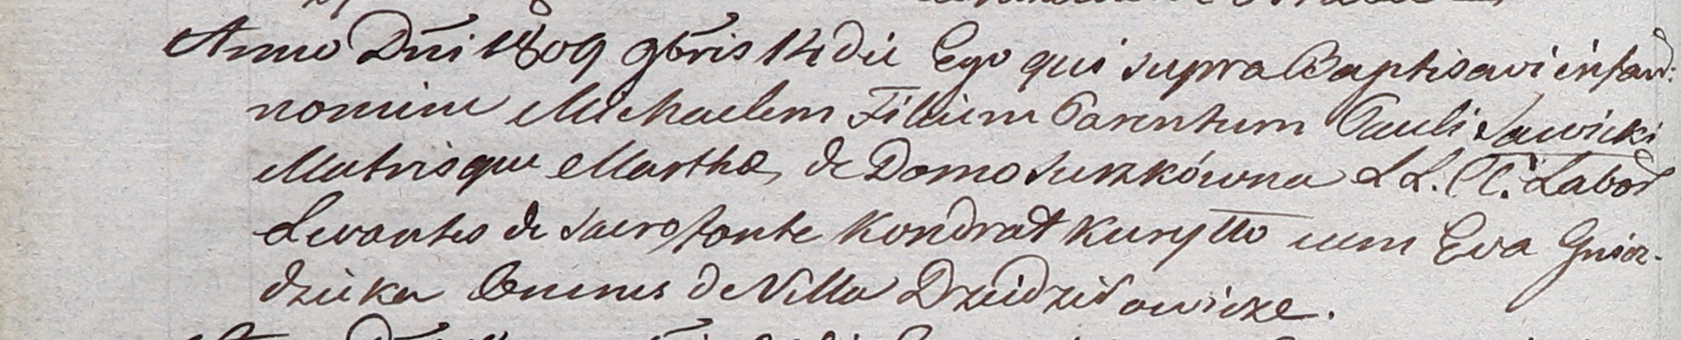 Anno Dñi 1809 9bris 14 die Ego qui supra Baptisavi infand:
nomine Michaelem Filium Parentum Pauli Sawicki
Matrisque Martha, de Domo Suszkówna L L. C. C. Labor
Levantes de Sacro fonte Kondrat Kuryllo cum Eva Gniaz-
dzicka Omnes de Villa Dzeidziłowicze.